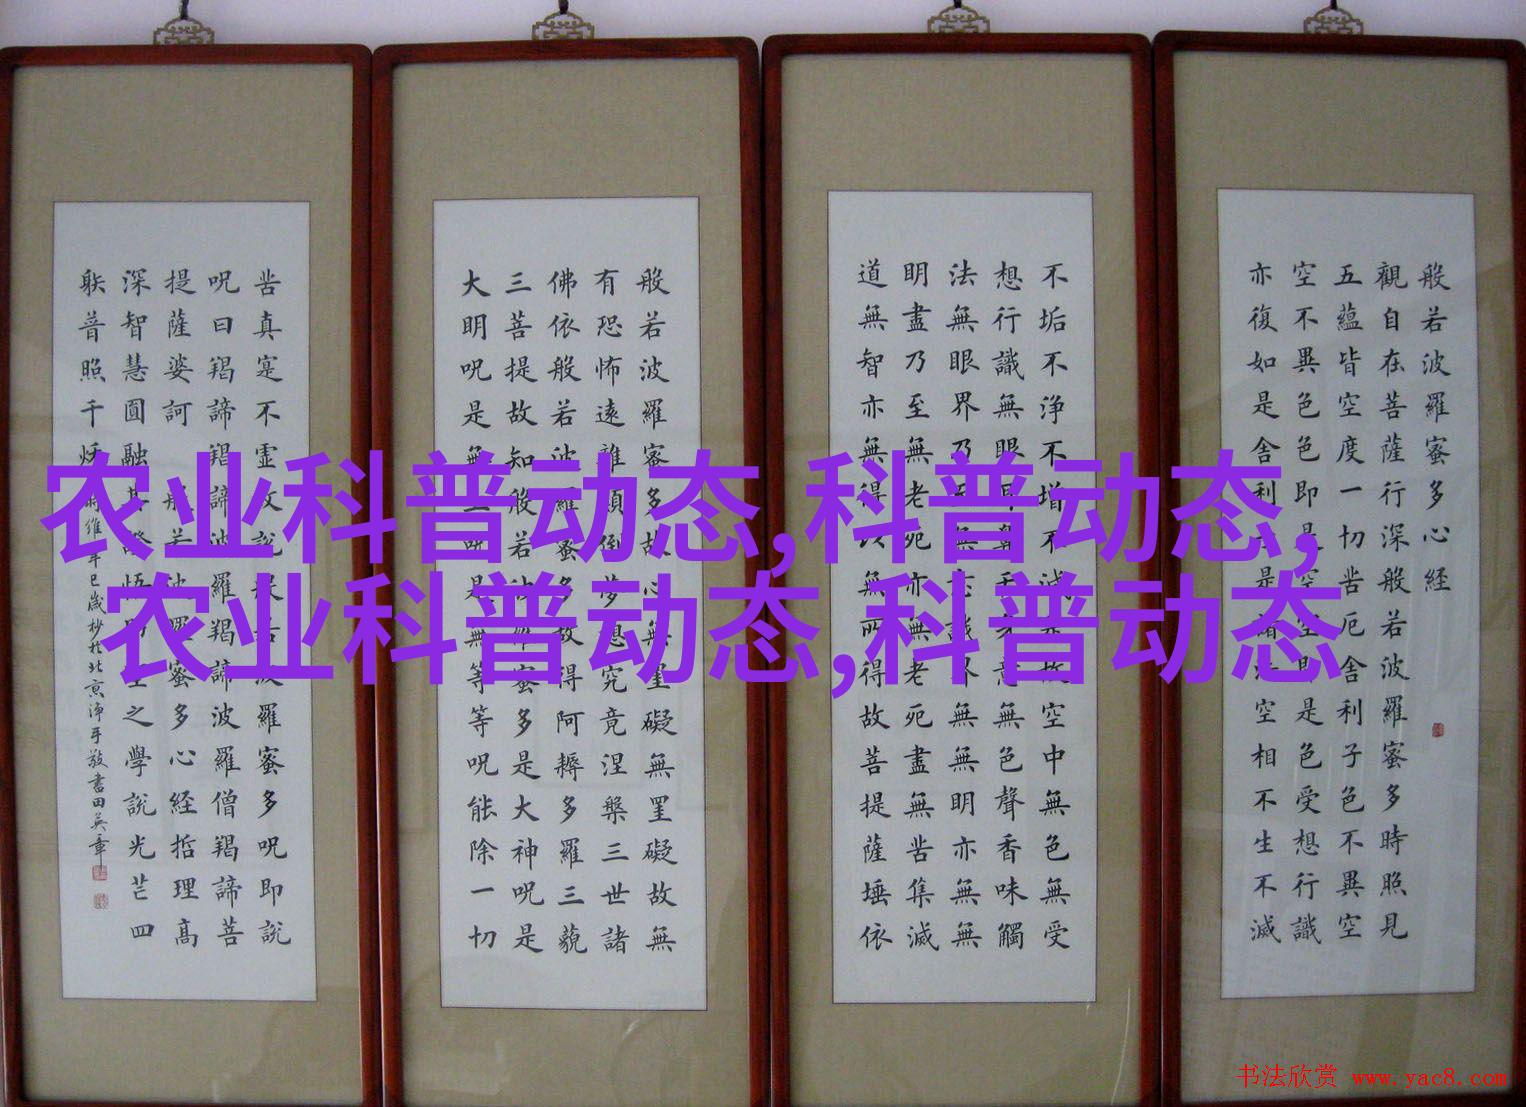 農业科普动态,科普动态,
农业科普动态,科普动态
般若波羅蜜多心経
觀自在菩薩行深般若波羅蜜多時照見
五蘊皆空度一切苦厄舍利子色不異空
空不異色色即是空空即是色受想行識
亦復如是舍利是諸法空相不生不滅
不垢不浄不增不減是故空中無色無受
想行識無眼耳鼻舌身意無色聲香味觸
法無眼界乃至無意識界無無明亦無無
明盡乃至無老死亦無老死盡無苦集滅
道無智亦無得以無所得故菩提薩埵依
般若波羅蜜多故心無罣礙無罣礙故無
有恐怖遠離顛倒夢想究竟涅槃三世諸
佛依般若波羅蜜多故得阿耨多羅三藐
三菩提故知般若波羅蜜多是大神呪是
大明呪是無上呪是無等等呪能除一切
苦真寔不虛故說般若波羅蜜多呪即說
呪曰羯諦羯諦波羅羯諦波羅僧羯諦菩
提薩婆訶 般若波羅蜜多心経哲理高
深智慧圓融其證悟之學說光芒四
普照千 維年巳歲杪於北京淨手敬書田英章
书法欣赏 www.yac8.com